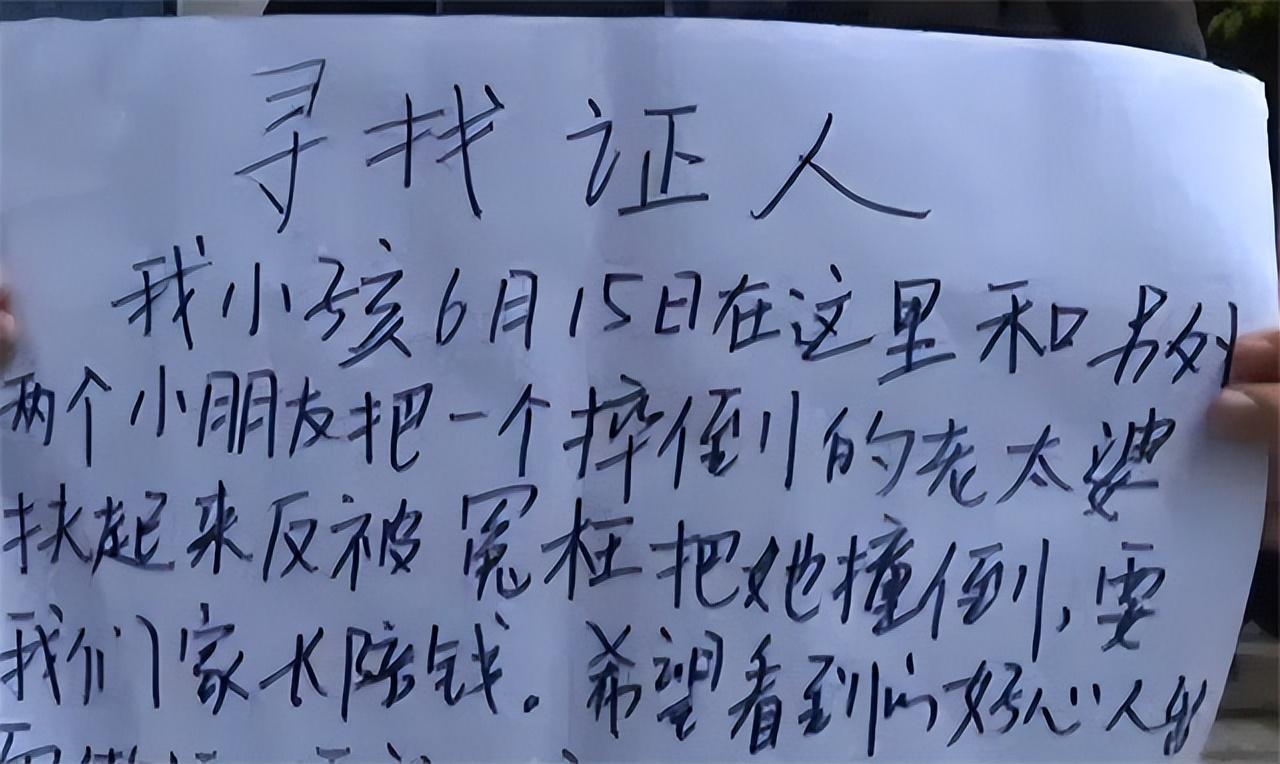 寻找证人
我小孩6月15日在这里和另外
两个小朋友把一个摔倒的老太婆
扶起来反被冤枉把她撞倒，要
我们家长陪钱。希望看到的好心人出